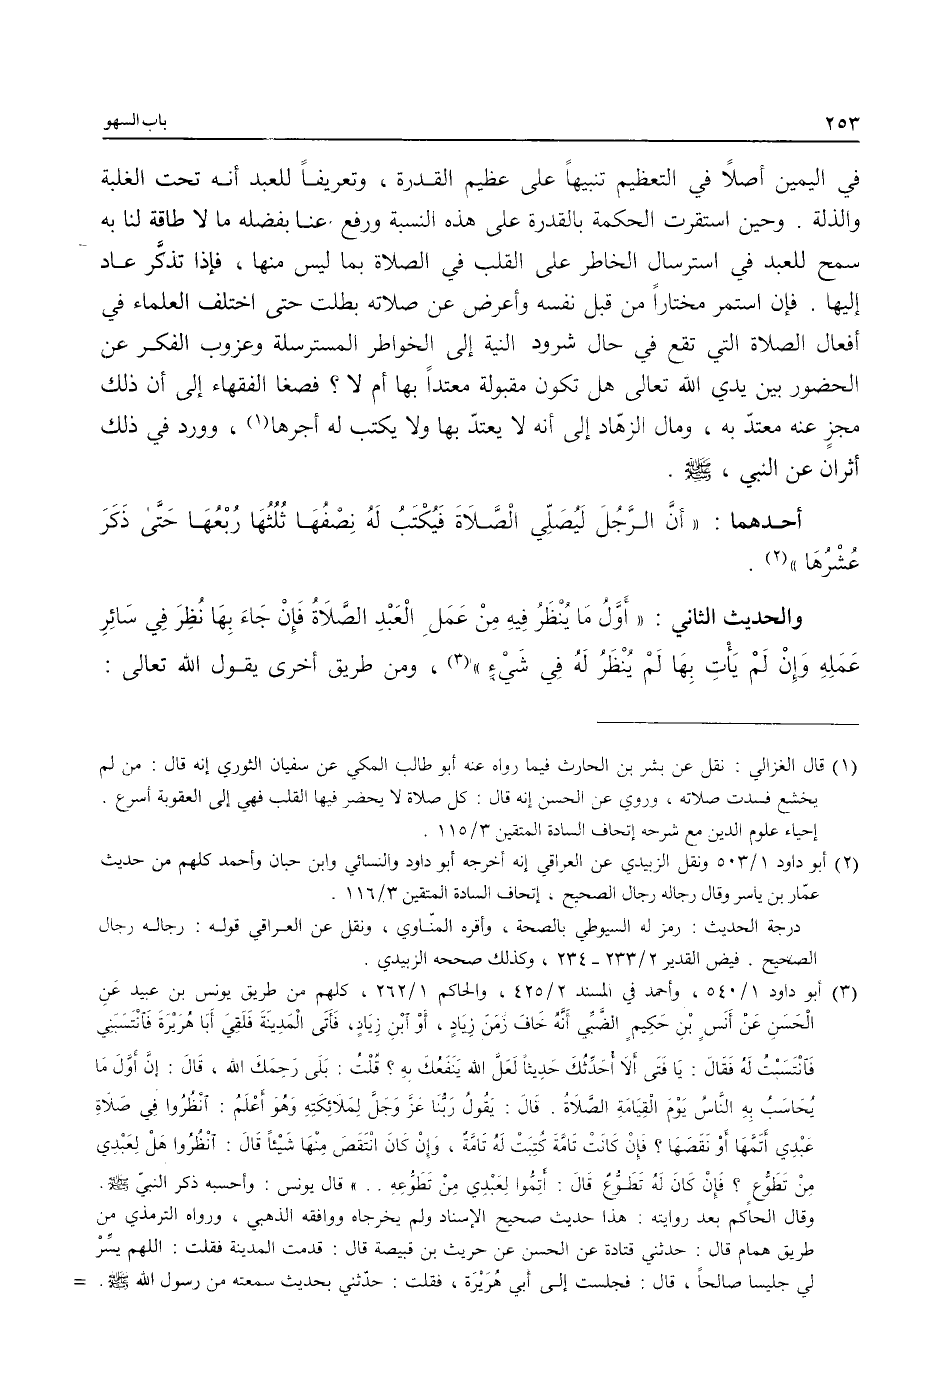 ٢٥٣ باب السهو
في اليمين أصلاً في التعظيم تنبيهاً على عظيم القدرة ، وتعريفاً للعبد أنه تحت الغلبة
والذلة . وحين استقرت الحكمة بالقدرة على هذه النسبة ورفع عنا بفضله ما لا طاقة لنا به
سمح للعبد في استرسال الخاطر على القلب في الصلاة بما ليس منها ، فإذا تذكَّر عاد
إليها . فإن استمر مختاراً من قبل نفسه وأعرض عن صلاته بطلت حتى اختلف العلماء في
أفعال الصلاة التي تقع في حال شرود النية إلى الخواطر المسترسلة وعزوب الفكر عن
الحضور بين يدي الله تعالى هل تكون مقبولة معتداً بها أم لا ؟ فصغا الفقهاء إلى أن ذلك
مجزٍ عنه معتدّ به ، ومال الزهّاد إلى أنه لا يعتدّ بها ولا يكتب له أجرها(١) ، وورد في ذلك
أثران عن النبي ، ﷺ .
أحدهما : « أنَّ الرَّجُلَ لَيُصَلِّي الْصَّلَاةَ فَيُكْتَبُ لَهُ نِصْفُهَا ثُلُثُهَا رُبْعُهَا حَتَّىٰ ذَكَرَ
عُشْرُهَا »(٢) .
والحديث الثاني : « أَوَّلُ مَا يُنْظَرُ فِيهِ مِنْ عَمَلِ الْعَبْدِ الصَّلَاةُ فَإِنْ جَاءَ بِهَا نُظِرَ فِي سَائِرِ
عَمَلِهِ وَإِنْ لَمْ يَأْتِ بِهَا لَمْ يُنْظَرُ لَهُ فِي شَيْءٍ »(٣) ، ومن طريق أخرى يقول الله تعالى :
(١) قال الغزالي : نقل عن بشر بن الحارث فيما رواه عنه أبو طالب المكي عن سفيان الثوري إنه قال : من لم
يخشع فسدت صلاته ، وروي عن الحسن إنه قال : كل صلاة لا يحضر فيها القلب فهي إلى العقوبة أسرع .
إحياء علوم الدين مع شرحه إتحاف السادة المتقين ١١٥/٣ .
(٢) أبو داود ٥٠٣/١ ونقل الزبيدي عن العراقي إنه أخرجه أبو داود والنسائي وابن حبان وأحمد كلهم من حديث
عمّار بن ياسر وقال رجاله رجال الصحيح ، إتحاف السادة المتقين ١١٦/٣ .
درجة الحديث : رمز له السيوطي بالصحة ، وأقره المنّاوي ، ونقل عن العراقي قوله : رجاله رجال
الصحيح . فيض القدير ٢٣٣/٢ ـ ٢٣٤ ، وكذلك صححه الزبيدي .
(٣) أبو داود ٥٤٠/١ ، وأحمد في المسند ٤٢٥/٢ ، والحاكم ٢٦٢/١ ، كلهم من طريق يونس بن عبيد عَنِ
الْحَسَنِ عَنْ أَنَسِ بْنِ حَكِيمٍ الضَّبِّي أَنَّهُ خَافَ زَمَنَ زِيَادٍ ، أَوْ ٱبْنِ زِيَادٍ، فَأَتَى الْمَدِينَةَ فَلَقِيَ أَبَا هُرَيْرَةَ فَٱنْتَسَبَنِي
فَٱنْتَسَبْتُ لَهُ فَقَالَ : يَا فَتَى أَلَا أُحَدِّثُكَ حَدِيثاً لَعَلَّ الله يَنْفَعُكَ بِهِ ؟ قُلْتُ : بَلَى رَحِمَكَ الله ، قَالَ : إِنَّ أَوَّلَ مَا
يُحَاسَبُ بِهِ النَّاسُ يَوْمَ الْقِيَامَةِ الصَّلَاةُ . قَالَ : يَقُولُ رَبُّنَا عَزَّ وَجَلَّ لِمَلَائِكَتِهِ وَهُوَ أَعْلَمُ : ٱنْظُرُوا فِي صَلَاةِ
عَبْدِي أَتَمَّهَا أَوْ نَقَصَهَا ؟ فَإِنْ كَانَتْ تَامَّةً كُتِبَتْ لَهُ تَامَّةً ، وَإِنْ كَانَ انْتَقَصَ مِنْهَا شَيْئاً قَالَ : ٱنْظُرُوا هَلْ لِعَبْدِي
مِنْ تَطَوُّعٍ ؟ فَإِنْ كَانَ لَهُ تَطَوُّعٌ قَالَ : أَتِمُّوا لِعَبْدِي مِنْ تَطَوُّعِهِ . . » قال يونس : وأحسبه ذكر النبيّ ﷺ .
وقال الحاكم بعد روايته : هذا حديث صحيح الإسناد ولم يخرجاه ووافقه الذهبي ، ورواه الترمذي من
طريق همام قال : حدثني قتادة عن الحسن عن حريث بن قبيصة قال : قدمت المدينة فقلت : اللهم يسِّرْ
لي جليسا صالحاً ، قال : فجلست إلى أبي هُرَيْرَة ، فقلت : حدّثني بحديث سمعته من رسول الله ﷺ . =